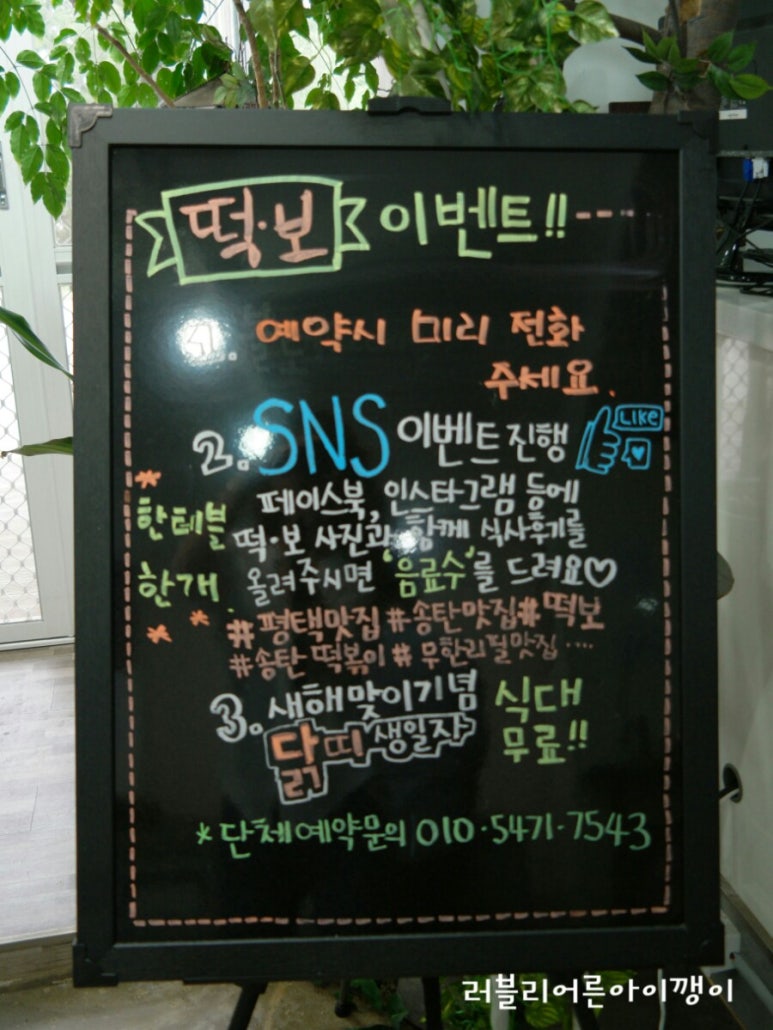 떡·보 이벤트!!
1. 예약시 미리 전화
주세요.
2. SNS 이벤트 진행
Like
*한테블
한개.
페이스북, 인스타그램 등에
떡·보 사진과 함께 식사후기를
올려주시면 '음료수'를 드려요♡
#평택맛집 #송탄맛집 #떡보
#송탄 떡볶이 #무한리필맛집 ....
3. 새해맞이기념
닭띠 생일자
식대
무료!!
*단체예약문의 010·5471·7543
러블리어른아이깽이